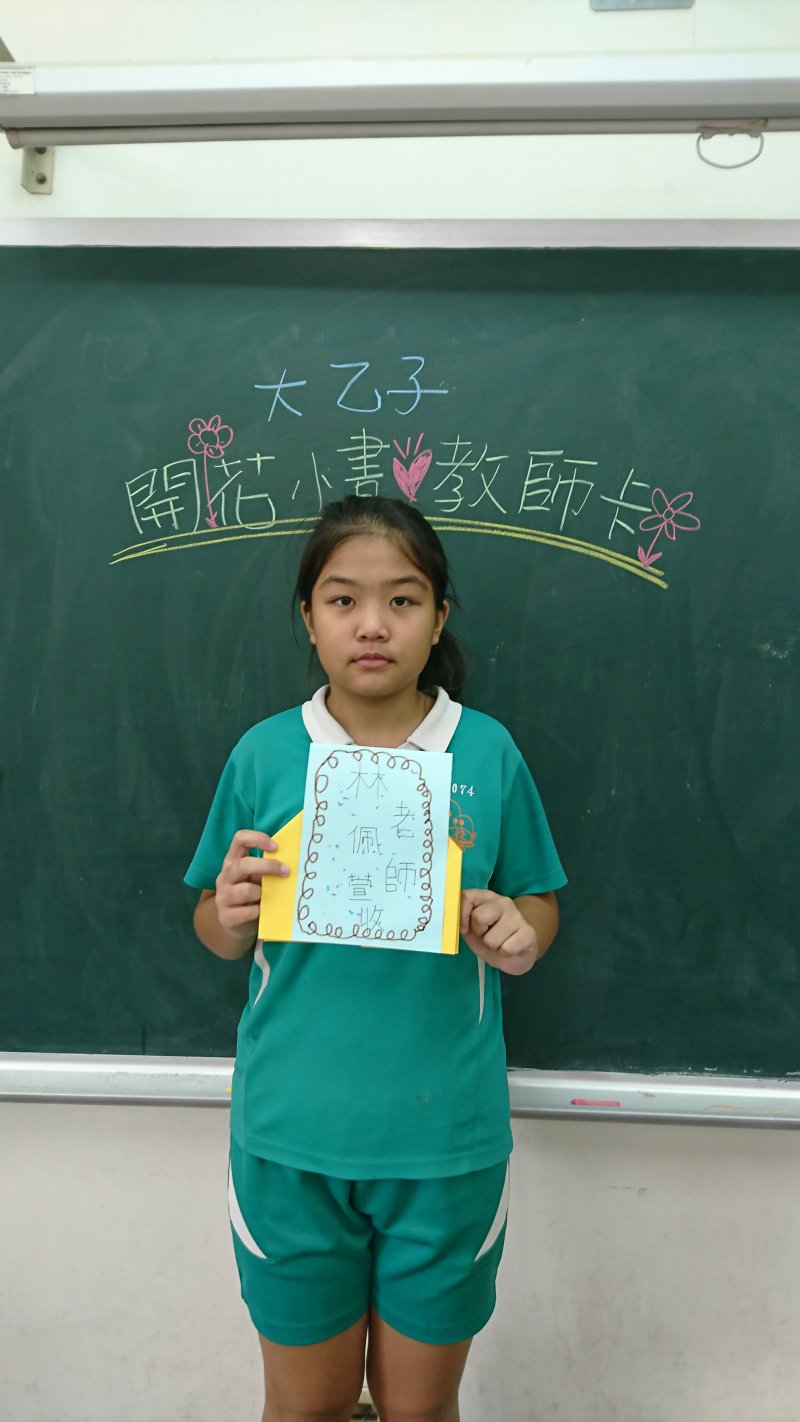 大乙子
開花小書教師卡
074
老師
林佩萱收